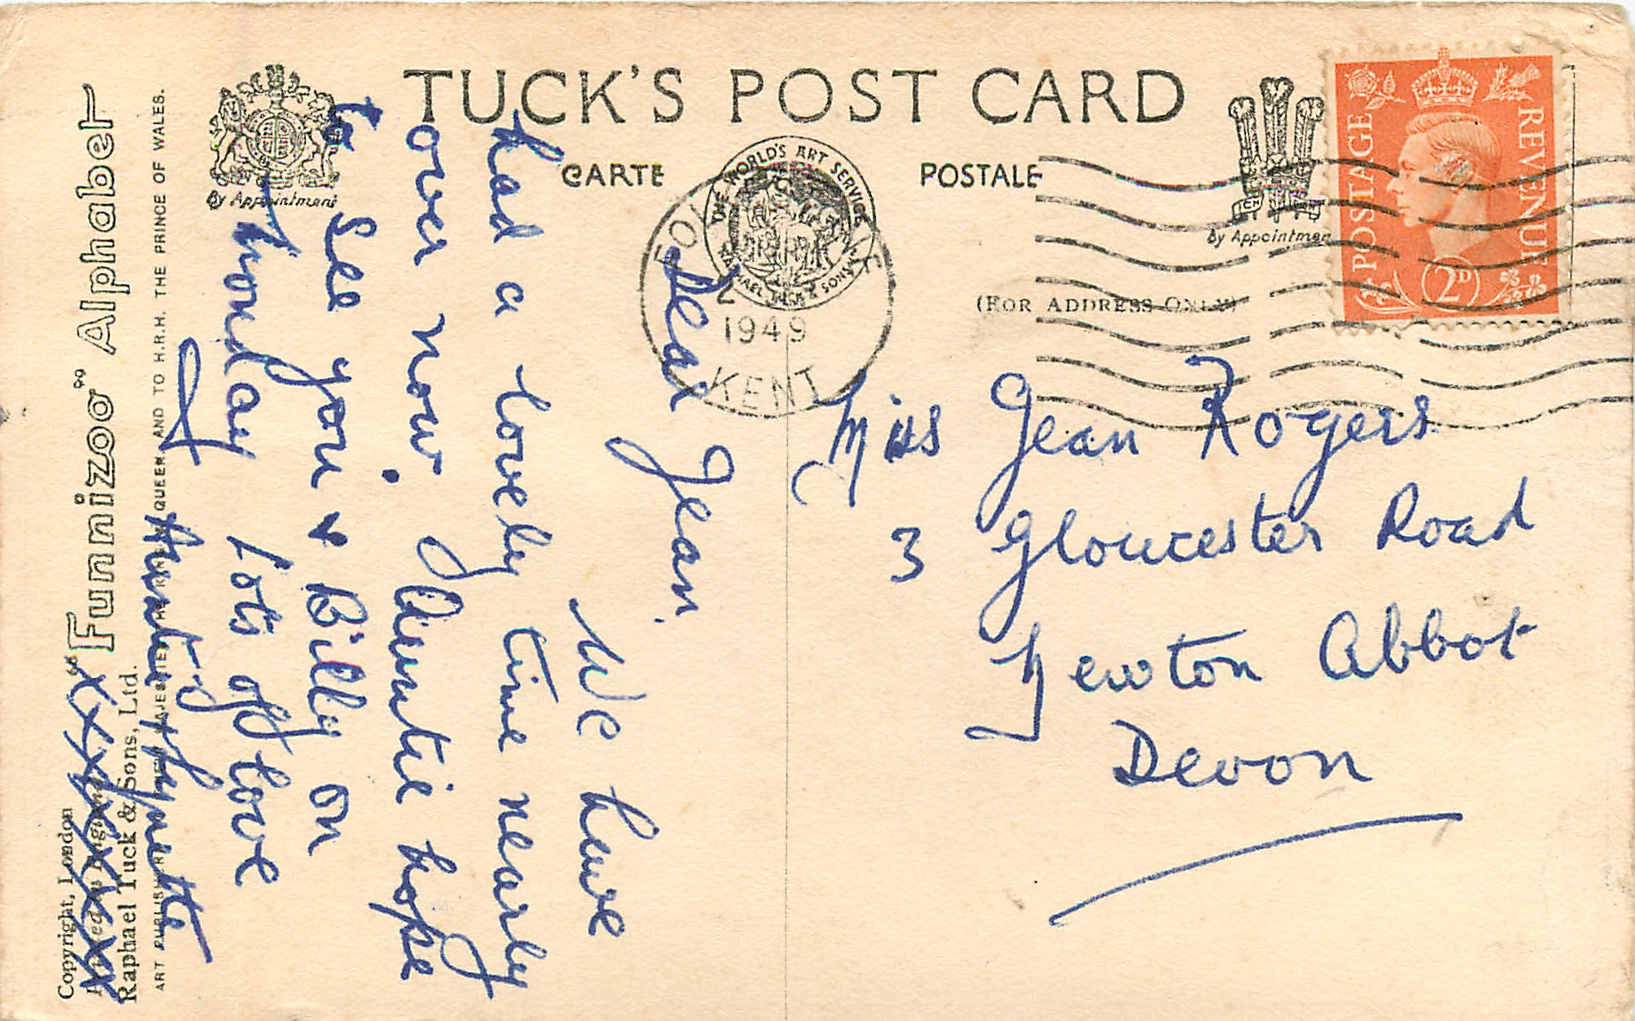 TUCK'S POST CARD
CARTE POSTALE
By Appointment
By Appointmen
THE WORLD'S ART SERVICE
RAPHAEL TUCK & SONS
(FOR ADDRESS ONLY)
POSTAGE REVENUE
2D
FOL
2
1949
KENT
Miss Jean Rogers
3 Gloucester Road
Newton Abbot
Devon
Dear Jean,
We have
had a lovely time nearly
over now. Auntie hope
to see you & Billy on
Monday lots of love
Auntie
xxxxxxx
"Funnizoo" Alphabet
Copyright, London
Raphael Tuck & Sons, Ltd.
QUEEN AND TO H.R.H. THE PRINCE OF WALES.